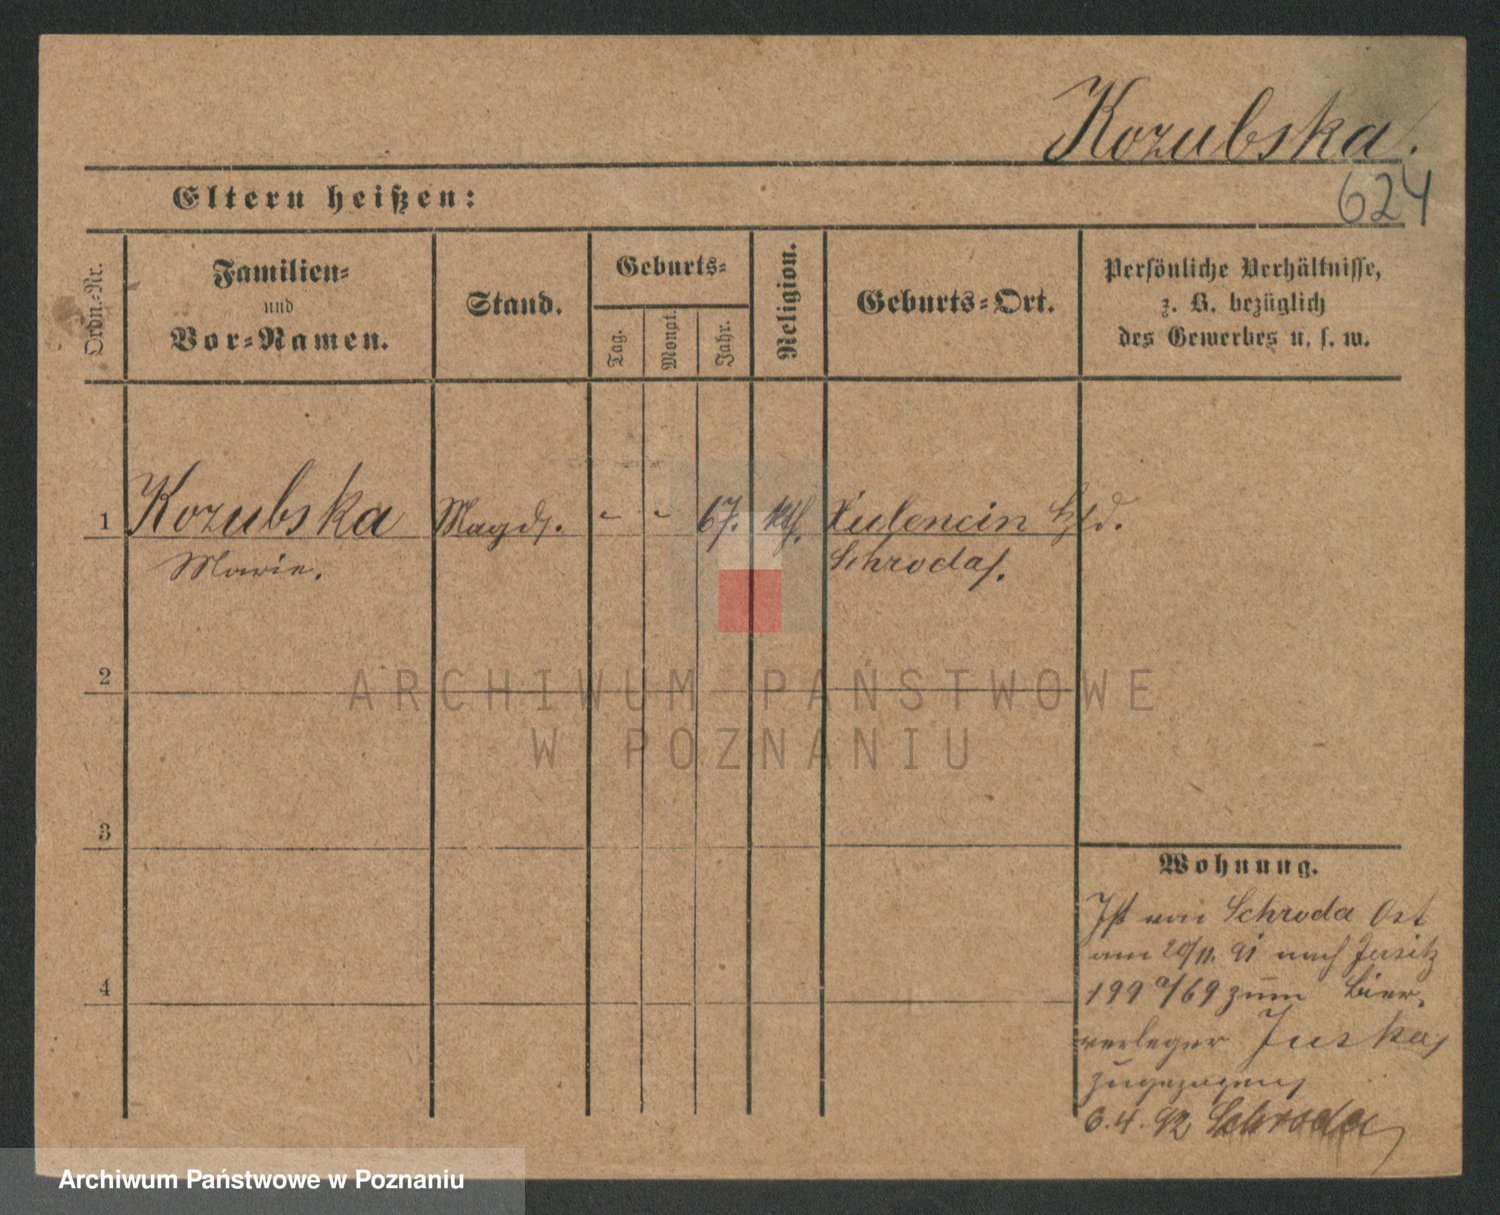 Kozubska.
624
Eltern heißen:
Ordn.-Nr.
Familien-
und
Vor-Namen.
Stand.
Geburts-
Tag.
Monat.
Jahr.
Religion.
Geburts-Ort.
Persönliche Verhältnisse,
z. B. bezüglich
des Gewerbes u. s. w.
1 Kozubska Magd. - - 67. kth.
Marie. Schroda.
2
ARCHIWUM PAŃSTWOWE
W POZNANIU
3
Wohnung.
Ist von Schroda Ost
am 20/11. 91 nach Jersitz
199 a/69 zum Bier-
verleger
zugezogen
4
6.4.92 Schroda
Archiwum Państwowe w Poznaniu